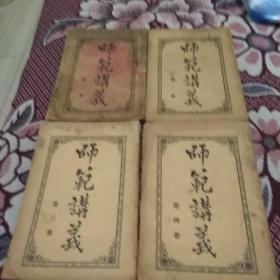 師範講義
師範講義
師範講義
第三冊
師範講義
第四冊